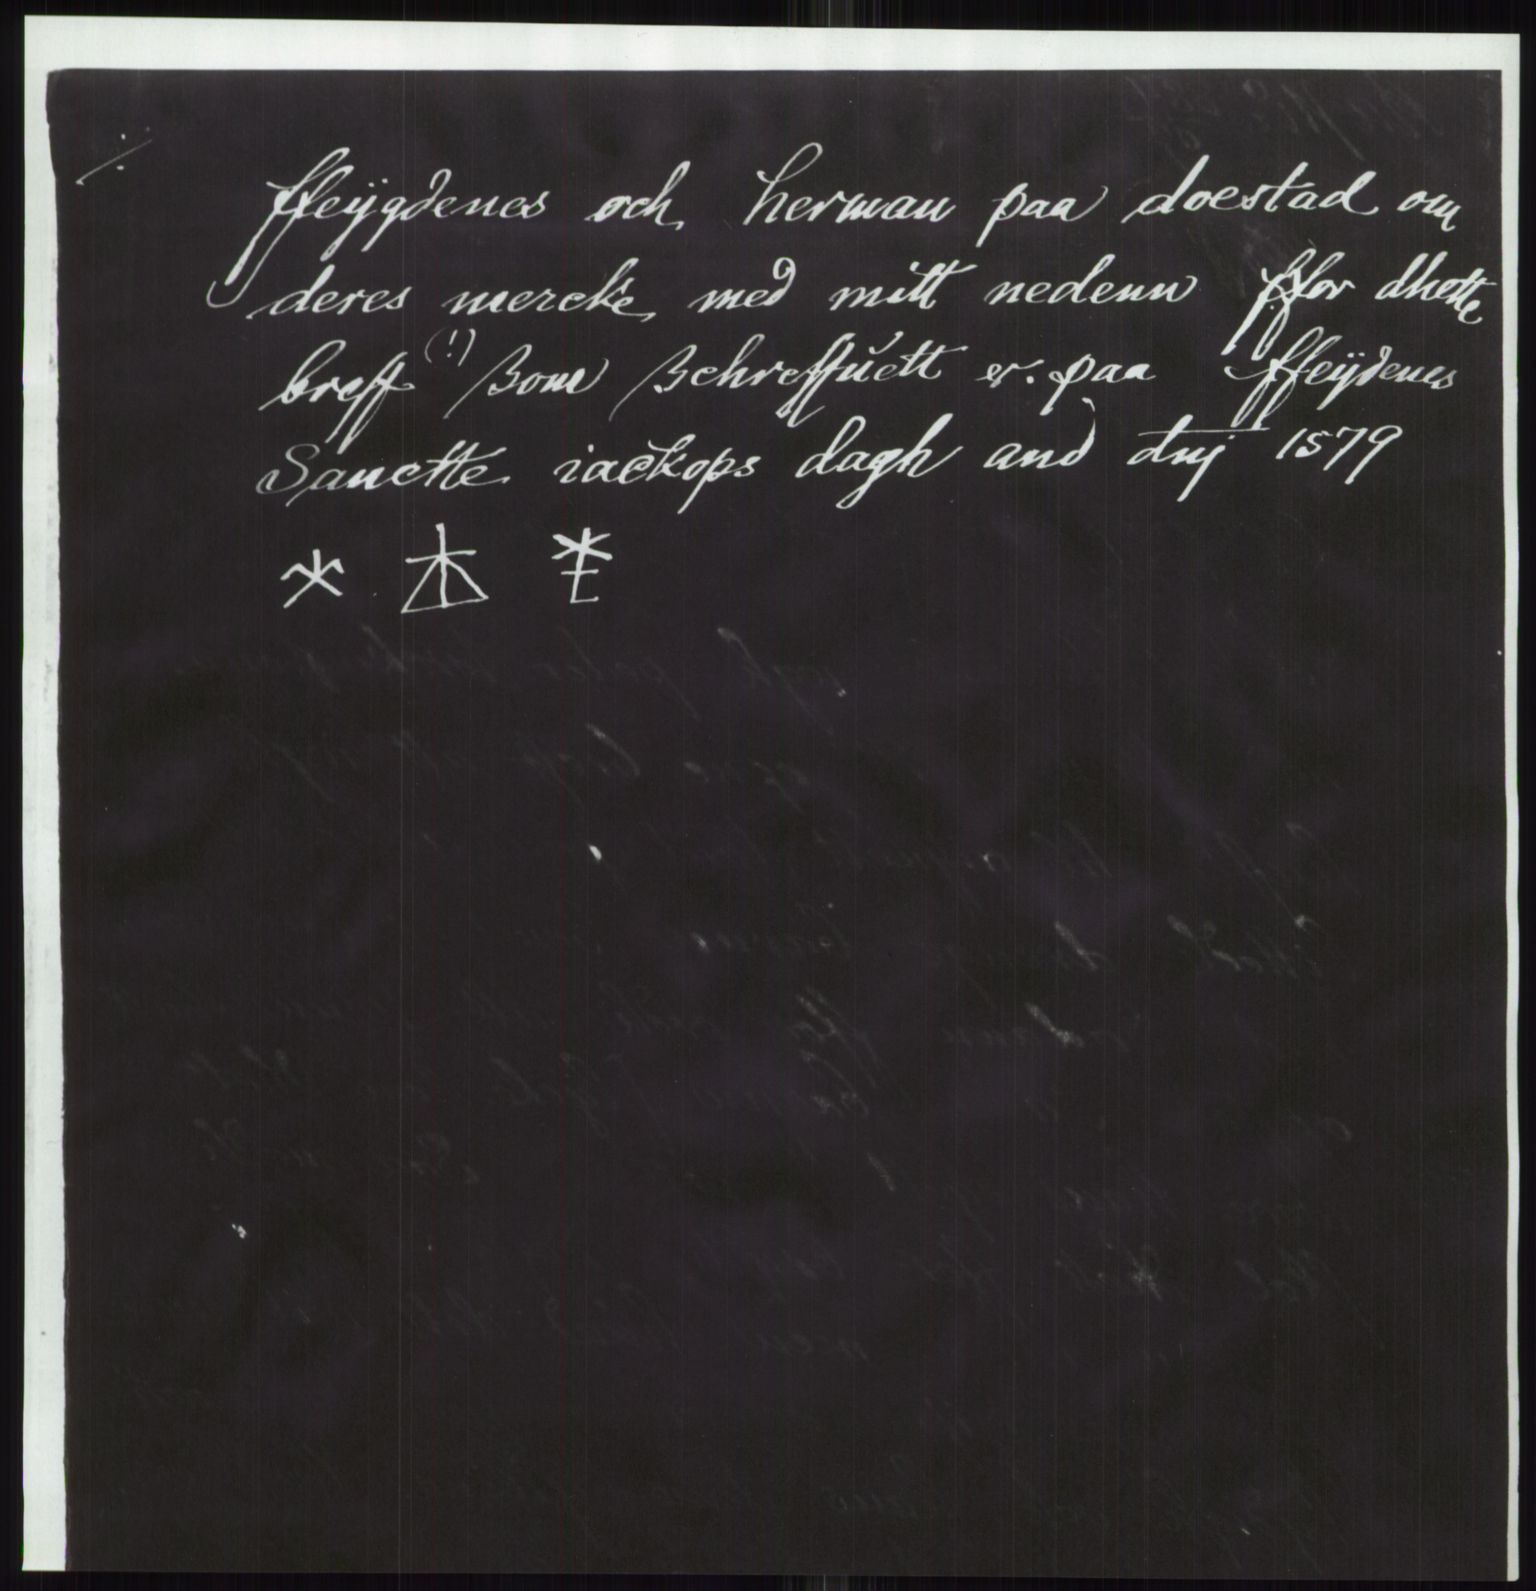 ffeÿgdenes och herman paa doestad om
deres mercke med mitt nedenn ffor dhette
breff (!) ßom ßchreffŭett er paa ffeÿdenes
Sanctte iackops dagh and dnj 1579